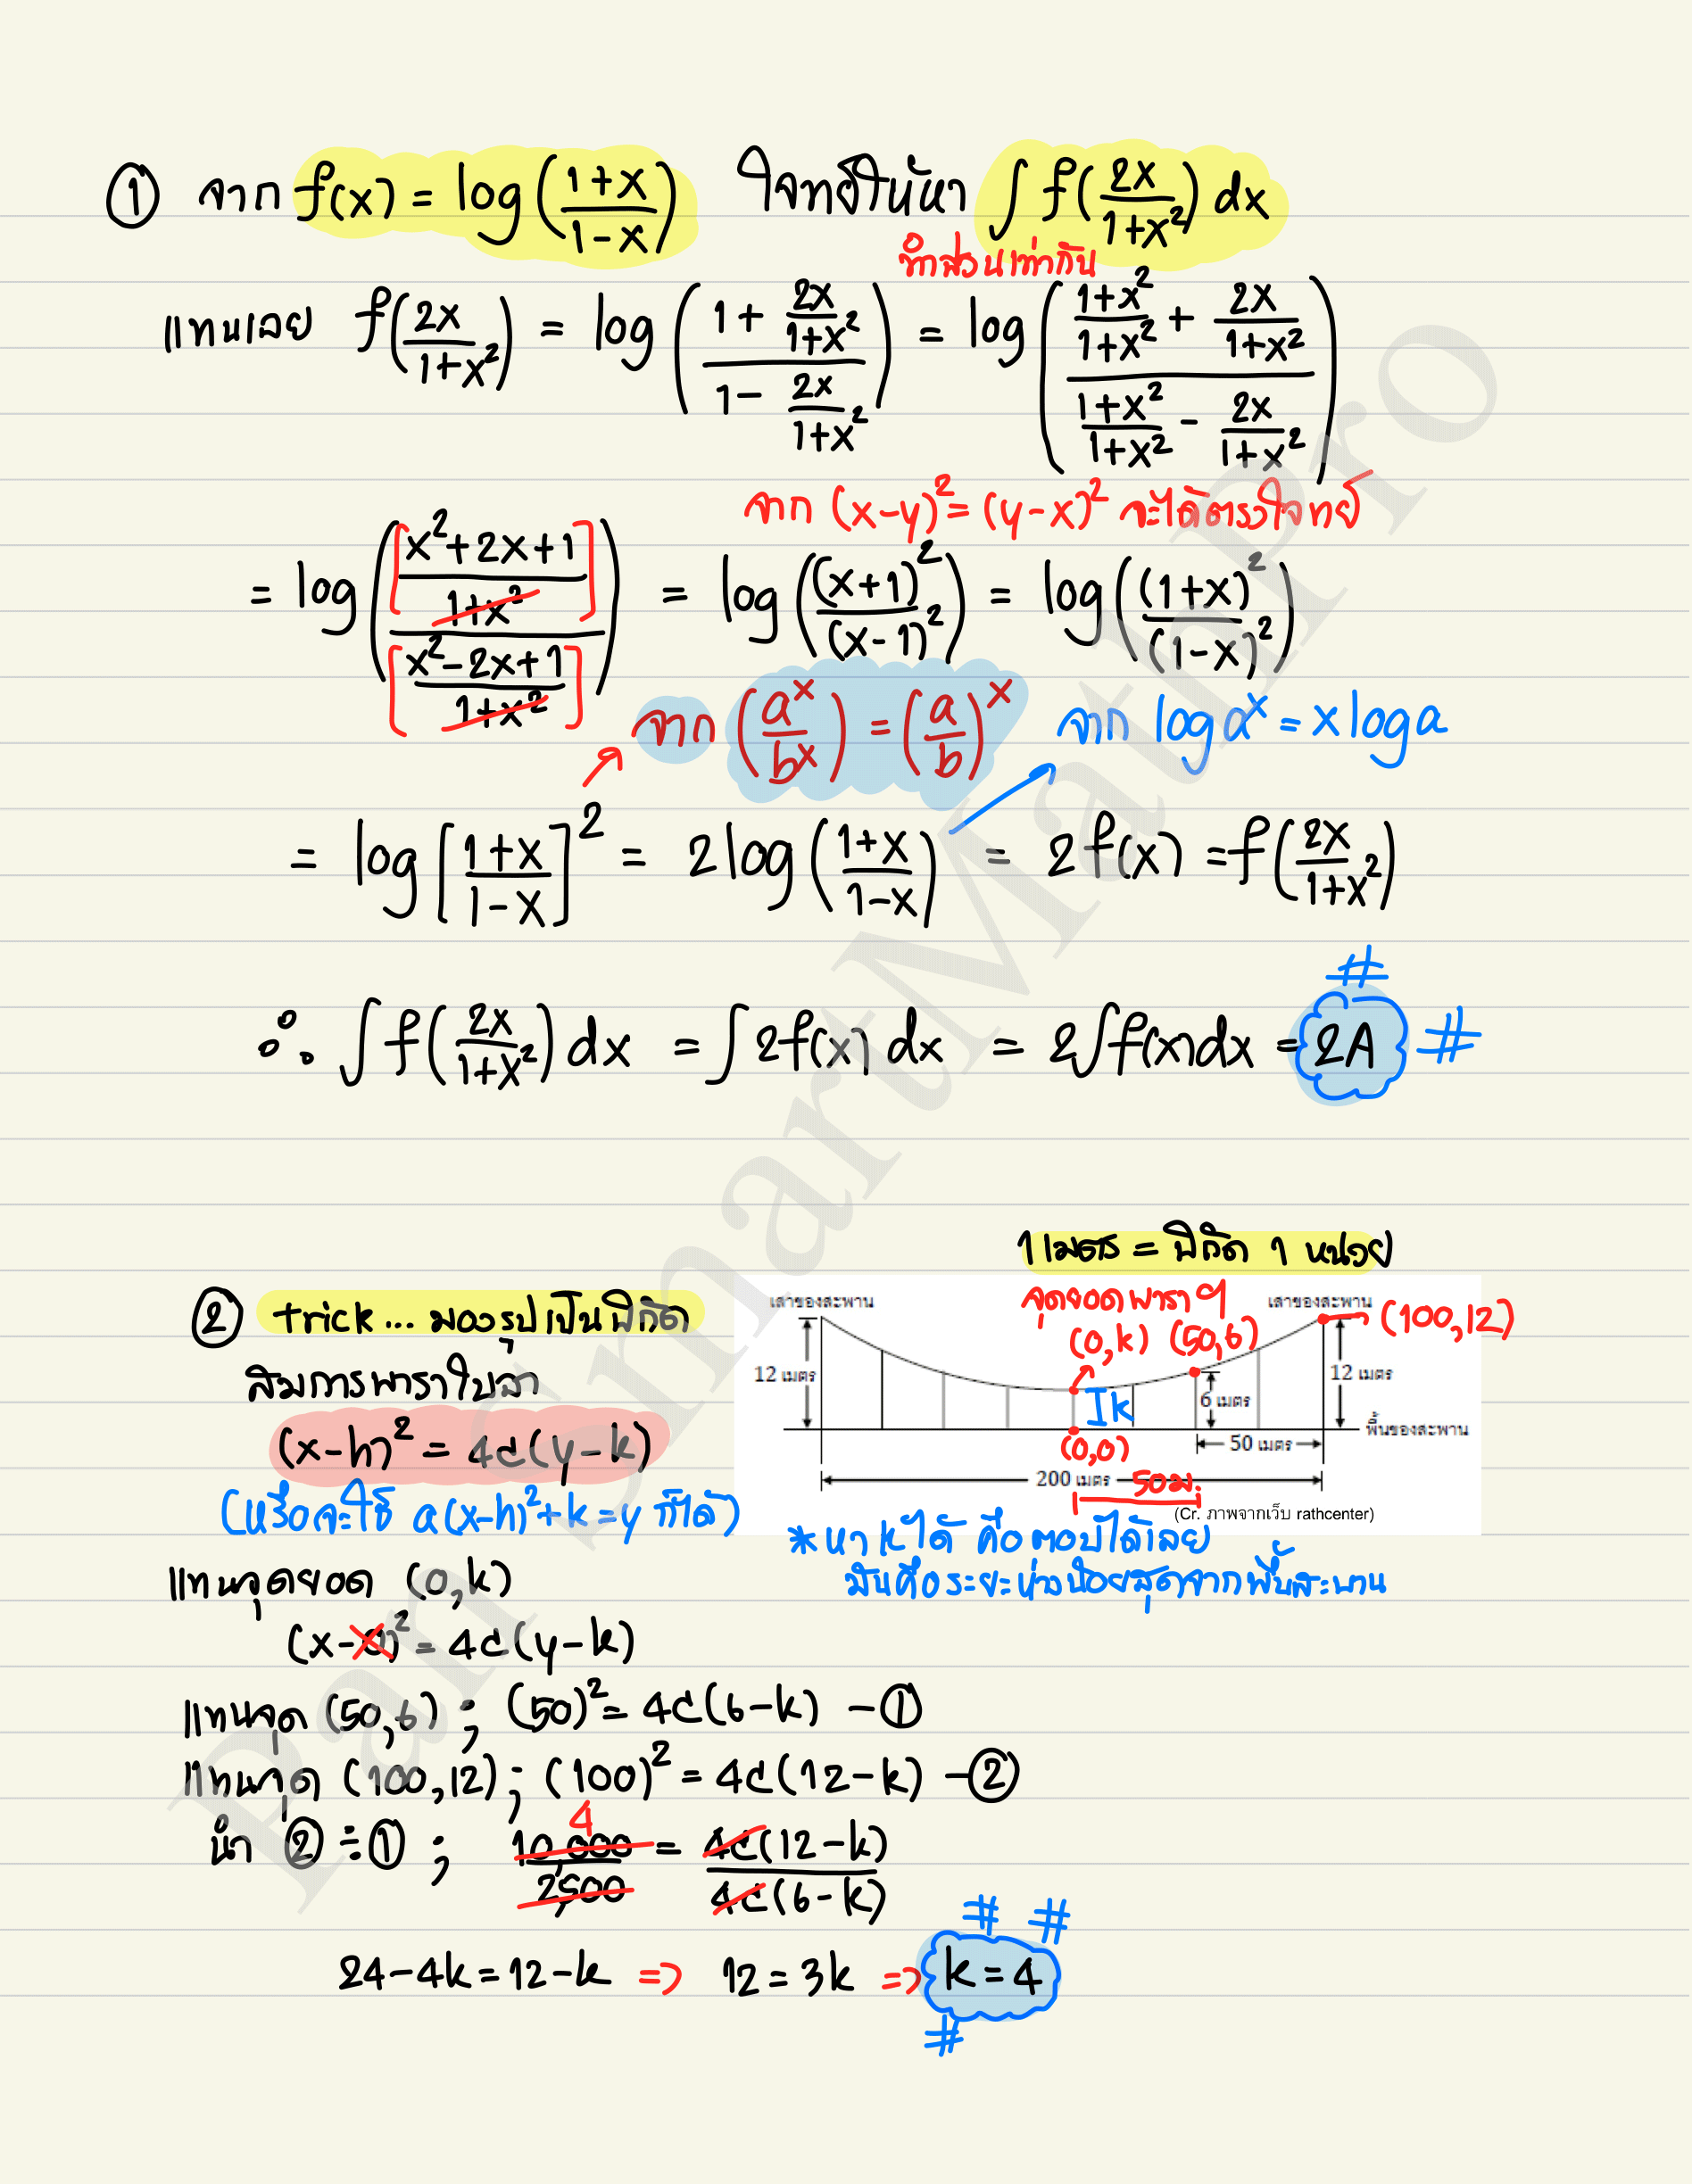 ① จาก f(x) = log((1+x)/(1-x)) โจทย์ให้หา ∫ f(2x/(1+x²)) dx
ทำส่วนเท่ากัน
แทนเลย f(2x/(1+x²)) = log((1 + 2x/(1+x²))/(1 - 2x/(1+x²))) = log(((1+x²)/(1+x²) + 2x/(1+x²))/((1+x²)/(1+x²) - 2x/(1+x²)))
จาก (x-y)² = (y-x)² จะได้ตรงโจทย์
= log([(x²+2x+1)/(1+x²)]/[(x²-2x+1)/(1+x²)]) = log((x+1)²/(x-1)²) = log((1+x)²/(1-x)²)
จาก (aˣ/bˣ) = (a/b)ˣ จาก log aˣ = x log a
= log[(1+x)/(1-x)]² = 2log((1+x)/(1-x)) = 2f(x) = f(2x/(1+x²))
∴ ∫ f(2x/(1+x²)) dx = ∫ 2f(x) dx = 2∫f(x)dx = 2A # #
1 เมตร = พิกัด 1 หน่วย
② trick... มองรูปเป็นพิกัด
เสาของสะพาน จุดยอดพาราฯ เสาของสะพาน (100,12)
(0,k) (50,6)
12 เมตร Ik 6 เมตร 12 เมตร
พื้นของสะพาน
(0,0) 50 เมตร
200 เมตร 50ม.
(Cr. ภาพจากเว็บ rathcenter)
สมการพาราโบลา
(x-h)² = 4c(y-k)
(หรือจะใช้ a(x-h)²+k=y ก็ได้)
*หา k ได้ คือตอบได้เลย
มันคือระยะห่างน้อยสุดจากพื้นสะพาน
แทนจุดยอด (0,k)
(x-0)² = 4c(y-k)
แทนจุด (50,6) ; (50)² = 4c(6-k) -①
แทนจุด (100,12) ; (100)² = 4c(12-k) -②
นำ ②÷① ; 10,000/2,500 = 4c(12-k)/4c(6-k)
4
24-4k=12-k => 12=3k => k=4 # # #
Pan SmartMathPro